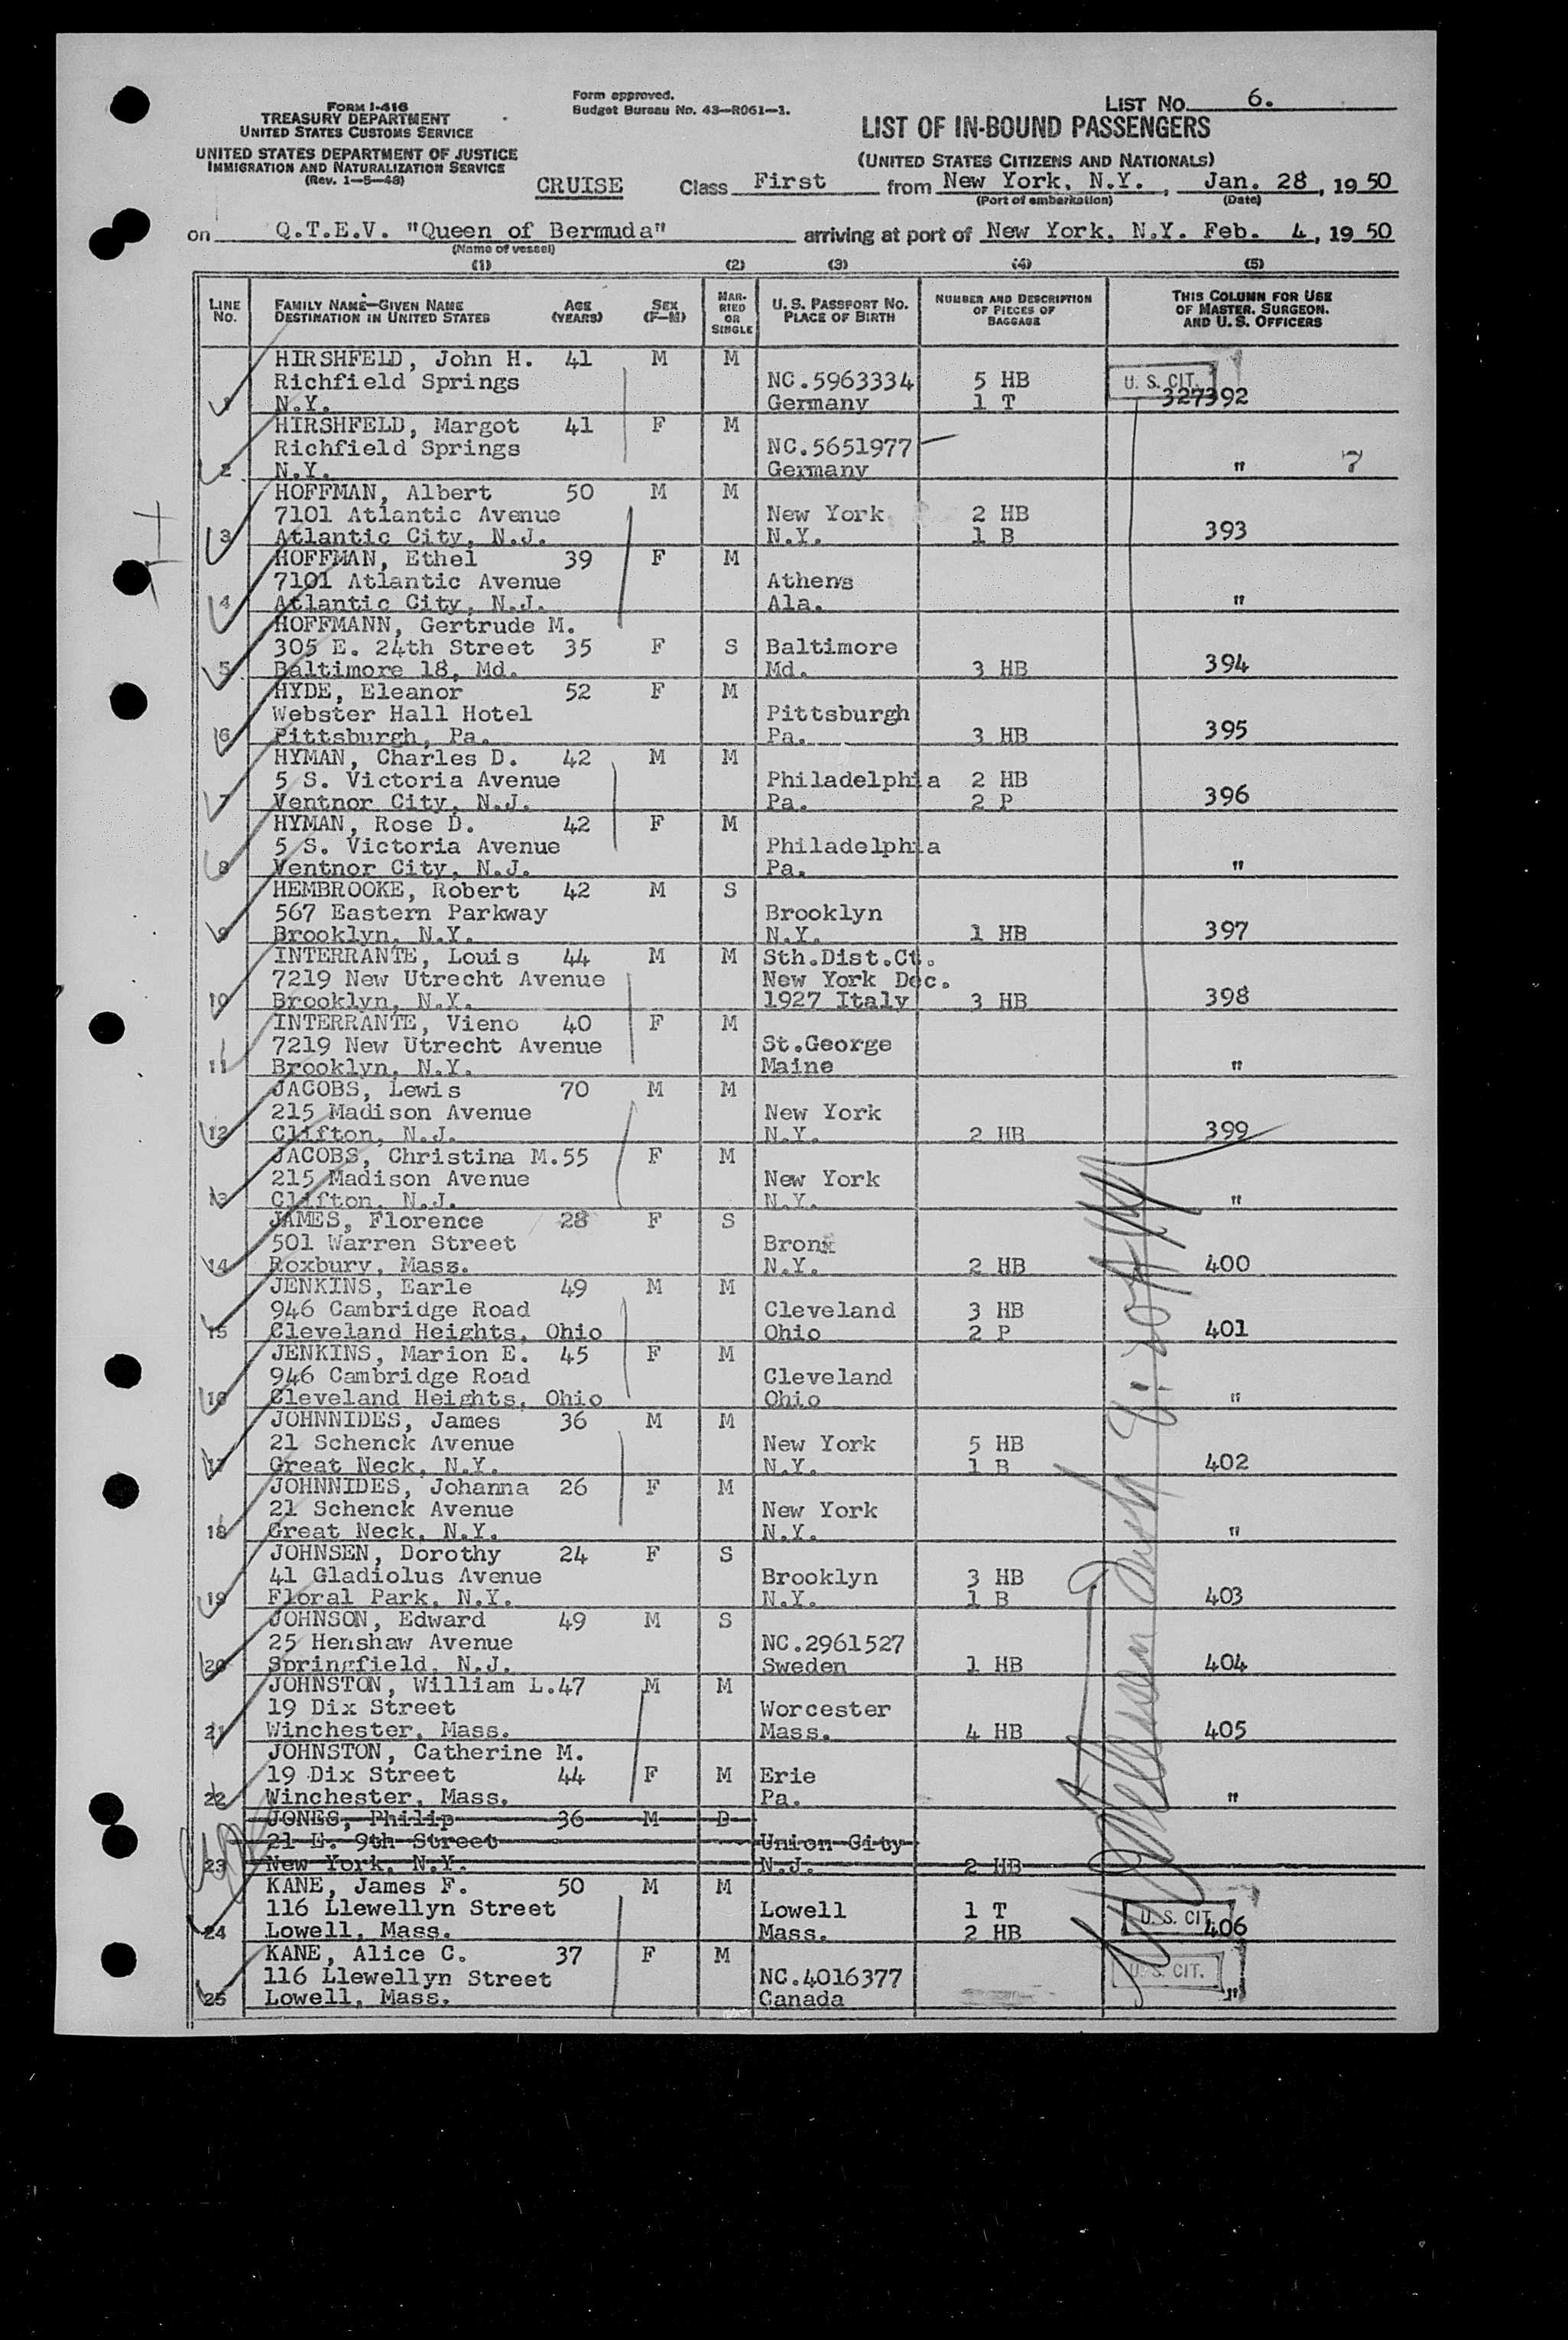 FORM I-416
TREASURY DEPARTMENT
UNITED STATES CUSTOMS SERVICE
UNITED STATES DEPARTMENT OF JUSTICE
IMMIGRATION AND NATURALIZATION SERVICE
(Rev. 1-5-48)
Form approved.
Budget Bureau No. 43-R061-1.
LIST NO. 6.
LIST OF IN-BOUND PASSENGERS
(UNITED STATES CITIZENS AND NATIONALS)
CRUISE Class First from New York, N.Y., Jan. 28, 1950
(Port of embarkation) (Date)
on Q.T.E.V. "Queen of Bermuda" arriving at port of New York, N.Y. Feb. 4, 1950
(Name of vessel)
(1) (2) (3) (4) (5)
LINE NO. FAMILY NAME—GIVEN NAME DESTINATION IN UNITED STATES AGE (YEARS) SEX (F-M) MARRIED OR SINGLE U. S. PASSPORT NO. PLACE OF BIRTH NUMBER AND DESCRIPTION OF PIECES OF BAGGAGE THIS COLUMN FOR USE OF MASTER, SURGEON, AND U. S. OFFICERS
HIRSHFELD, John H. 41 M M
Richfield Springs NC.5963334 5 HB U. S. CIT.
1 N.Y. Germany 1 T 327392
HIRSHFELD, Margot 41 F M
Richfield Springs NC.5651977
2 N.Y. Germany " 7
HOFFMAN, Albert 50 M M
7101 Atlantic Avenue New York 2 HB
3 Atlantic City, N.J. N.Y. 1 B 393
HOFFMAN, Ethel 39 F M
7101 Atlantic Avenue Athens
4 Atlantic City, N.J. Ala. "
HOFFMANN, Gertrude M.
305 E. 24th Street 35 F S Baltimore
5 Baltimore 18, Md. Md. 3 HB 394
HYDE, Eleanor 52 F M
Webster Hall Hotel Pittsburgh
6 Pittsburgh, Pa. Pa. 3 HB 395
HYMAN, Charles D. 42 M M
5 S. Victoria Avenue Philadelphia 2 HB
7 Ventnor City, N.J. Pa. 2 P 396
HYMAN, Rose D. 42 F M
5 S. Victoria Avenue Philadelphia
8 Ventnor City, N.J. Pa. "
HEMBROOKE, Robert 42 M S
567 Eastern Parkway Brooklyn
9 Brooklyn, N.Y. N.Y. 1 HB 397
INTERRANTE, Louis 44 M M Sth.Dist.Ct.
7219 New Utrecht Avenue New York Dec.
10 Brooklyn, N.Y. 1927 Italy 3 HB 398
INTERRANTE, Vieno 40 F M
7219 New Utrecht Avenue St.George
11 Brooklyn, N.Y. Maine "
JACOBS, Lewis 70 M M
215 Madison Avenue New York
12 Clifton, N.J. N.Y. 2 HB 399
JACOBS, Christina M. 55 F M
215 Madison Avenue New York
13 Clifton, N.J. N.Y. "
JAMES, Florence 28 F S
501 Warren Street Bronx
14 Roxbury, Mass. N.Y. 2 HB 400
JENKINS, Earle 49 M M
946 Cambridge Road Cleveland 3 HB
15 Cleveland Heights, Ohio Ohio 2 P 401
JENKINS, Marion E. 45 F M
946 Cambridge Road Cleveland
16 Cleveland Heights, Ohio Ohio "
JOHNNIDES, James 36 M M
21 Schenck Avenue New York 5 HB
17 Great Neck, N.Y. N.Y. 1 B 402
JOHNNIDES, Johanna 26 F M
21 Schenck Avenue New York
18 Great Neck, N.Y. N.Y. "
JOHNSEN, Dorothy 24 F S
41 Gladiolus Avenue Brooklyn 3 HB
19 Floral Park, N.Y. N.Y. 1 B 403
JOHNSON, Edward 49 M S
25 Henshaw Avenue NC.2961527
20 Springfield, N.J. Sweden 1 HB 404
JOHNSTON, William L. 47 M M
19 Dix Street Worcester
21 Winchester, Mass. Mass. 4 HB 405
JOHNSTON, Catherine M.
19 Dix Street 44 F M Erie
22 Winchester, Mass. Pa. "
JONES, Philip 36 M D
21 E. 9th Street Union City
23 New York, N.Y. N.J. 2 HB
KANE, James F. 50 M M
116 Llewellyn Street Lowell 1 T U. S. CIT.
24 Lowell, Mass. Mass. 2 HB 406
KANE, Alice C. 37 F M
116 Llewellyn Street NC.4016377 U. S. CIT.
25 Lowell, Mass. Canada "